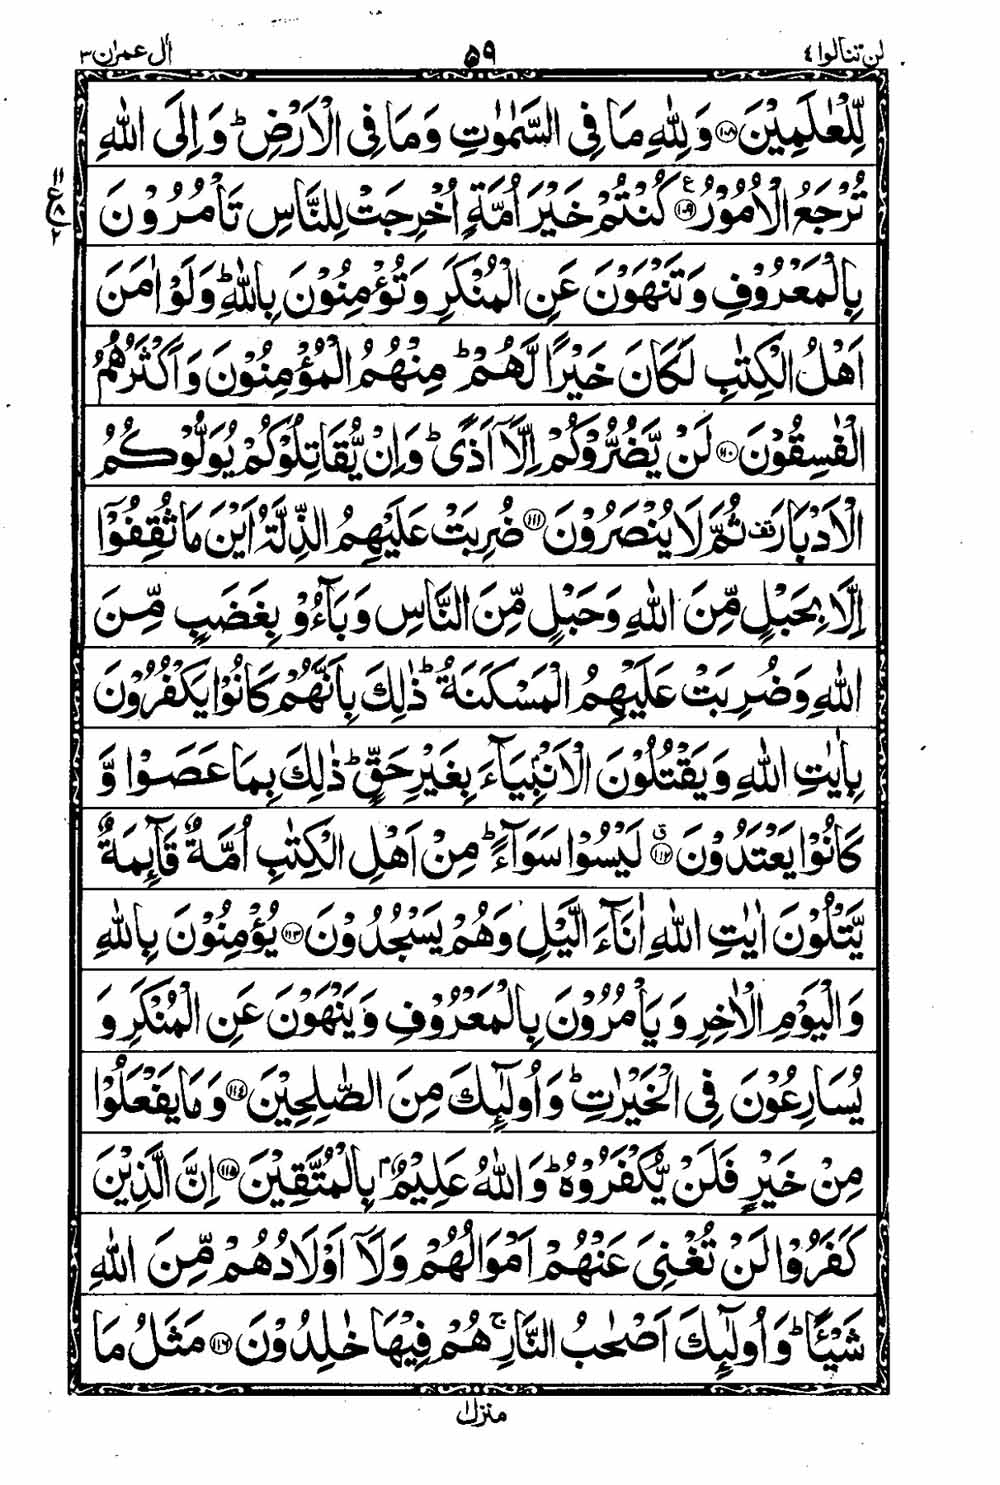 لن تنالوا ٤ ۵۹ اٰل عمرٰن ٣
لِّلْعٰلَمِیْنَ ﴿۱۰۸﴾ وَ لِلّٰهِ مَا فِی السَّمٰوٰتِ وَ مَا فِی الْاَرْضِ ؕ وَ اِلَی اللّٰهِ
تُرْجَعُ الْاُمُوْرُ ﴿۱۰۹﴾ ع كُنْتُمْ خَیْرَ اُمَّةٍ اُخْرِجَتْ لِلنَّاسِ تَاْمُرُوْنَ
١١ ع ٨ ٢
بِالْمَعْرُوْفِ وَ تَنْهَوْنَ عَنِ الْمُنْكَرِ وَ تُؤْمِنُوْنَ بِاللّٰهِ ؕ وَ لَوْ اٰمَنَ
اَهْلُ الْكِتٰبِ لَكَانَ خَیْرًا لَّهُمْ ؕ مِنْهُمُ الْمُؤْمِنُوْنَ وَ اَكْثَرُهُمُ
الْفٰسِقُوْنَ ﴿۱۱۰﴾ لَنْ یَّضُرُّوْكُمْ اِلَّاۤ اَذًی ؕ وَ اِنْ یُّقَاتِلُوْكُمْ یُوَلُّوْكُمُ
الْاَدْبَارَ ۫ ثُمَّ لَا یُنْصَرُوْنَ ﴿۱۱۱﴾ ضُرِبَتْ عَلَیْهِمُ الذِّلَّةُ اَیْنَ مَا ثُقِفُوْۤا
اِلَّا بِحَبْلٍ مِّنَ اللّٰهِ وَ حَبْلٍ مِّنَ النَّاسِ وَ بَآءُوْ بِغَضَبٍ مِّنَ
اللّٰهِ وَ ضُرِبَتْ عَلَیْهِمُ الْمَسْكَنَةُ ؕ ذٰلِكَ بِاَنَّهُمْ كَانُوْا یَكْفُرُوْنَ
بِاٰیٰتِ اللّٰهِ وَ یَقْتُلُوْنَ الْاَنْۢبِیَآءَ بِغَیْرِ حَقٍّ ؕ ذٰلِكَ بِمَا عَصَوْا وَّ
كَانُوْا یَعْتَدُوْنَ ﴿۱۱۲﴾ ۗ لَیْسُوْا سَوَآءً ؕ مِنْ اَهْلِ الْكِتٰبِ اُمَّةٌ قَآىِٕمَةٌ
یَّتْلُوْنَ اٰیٰتِ اللّٰهِ اٰنَآءَ الَّیْلِ وَ هُمْ یَسْجُدُوْنَ ﴿۱۱۳﴾ یُؤْمِنُوْنَ بِاللّٰهِ
وَ الْیَوْمِ الْاٰخِرِ وَ یَاْمُرُوْنَ بِالْمَعْرُوْفِ وَ یَنْهَوْنَ عَنِ الْمُنْكَرِ وَ
یُسَارِعُوْنَ فِی الْخَیْرٰتِ ؕ وَ اُولٰٓىِٕكَ مِنَ الصّٰلِحِیْنَ ﴿۱۱۴﴾ وَ مَا یَفْعَلُوْا
مِنْ خَیْرٍ فَلَنْ یُّكْفَرُوْهُ ؕ وَ اللّٰهُ عَلِیْمٌۢ بِالْمُتَّقِیْنَ ﴿۱۱۵﴾ اِنَّ الَّذِیْنَ
كَفَرُوْا لَنْ تُغْنِیَ عَنْهُمْ اَمْوَالُهُمْ وَ لَاۤ اَوْلَادُهُمْ مِّنَ اللّٰهِ
شَیْـًٔا ؕ وَ اُولٰٓىِٕكَ اَصْحٰبُ النَّارِ ۚ هُمْ فِیْهَا خٰلِدُوْنَ ﴿۱۱۶﴾ مَثَلُ مَا
منزل ١